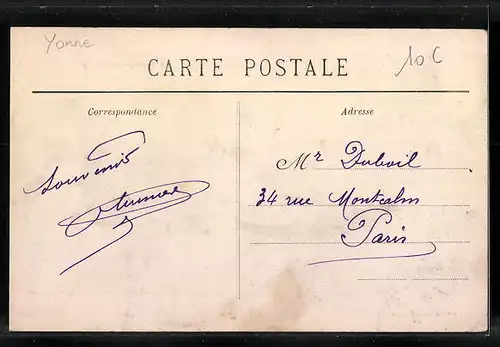 Yonne
10 C
CARTE POSTALE
Correspondance
Adresse
Souvenir
Mr Duboil
34 rue Montcalm
Paris